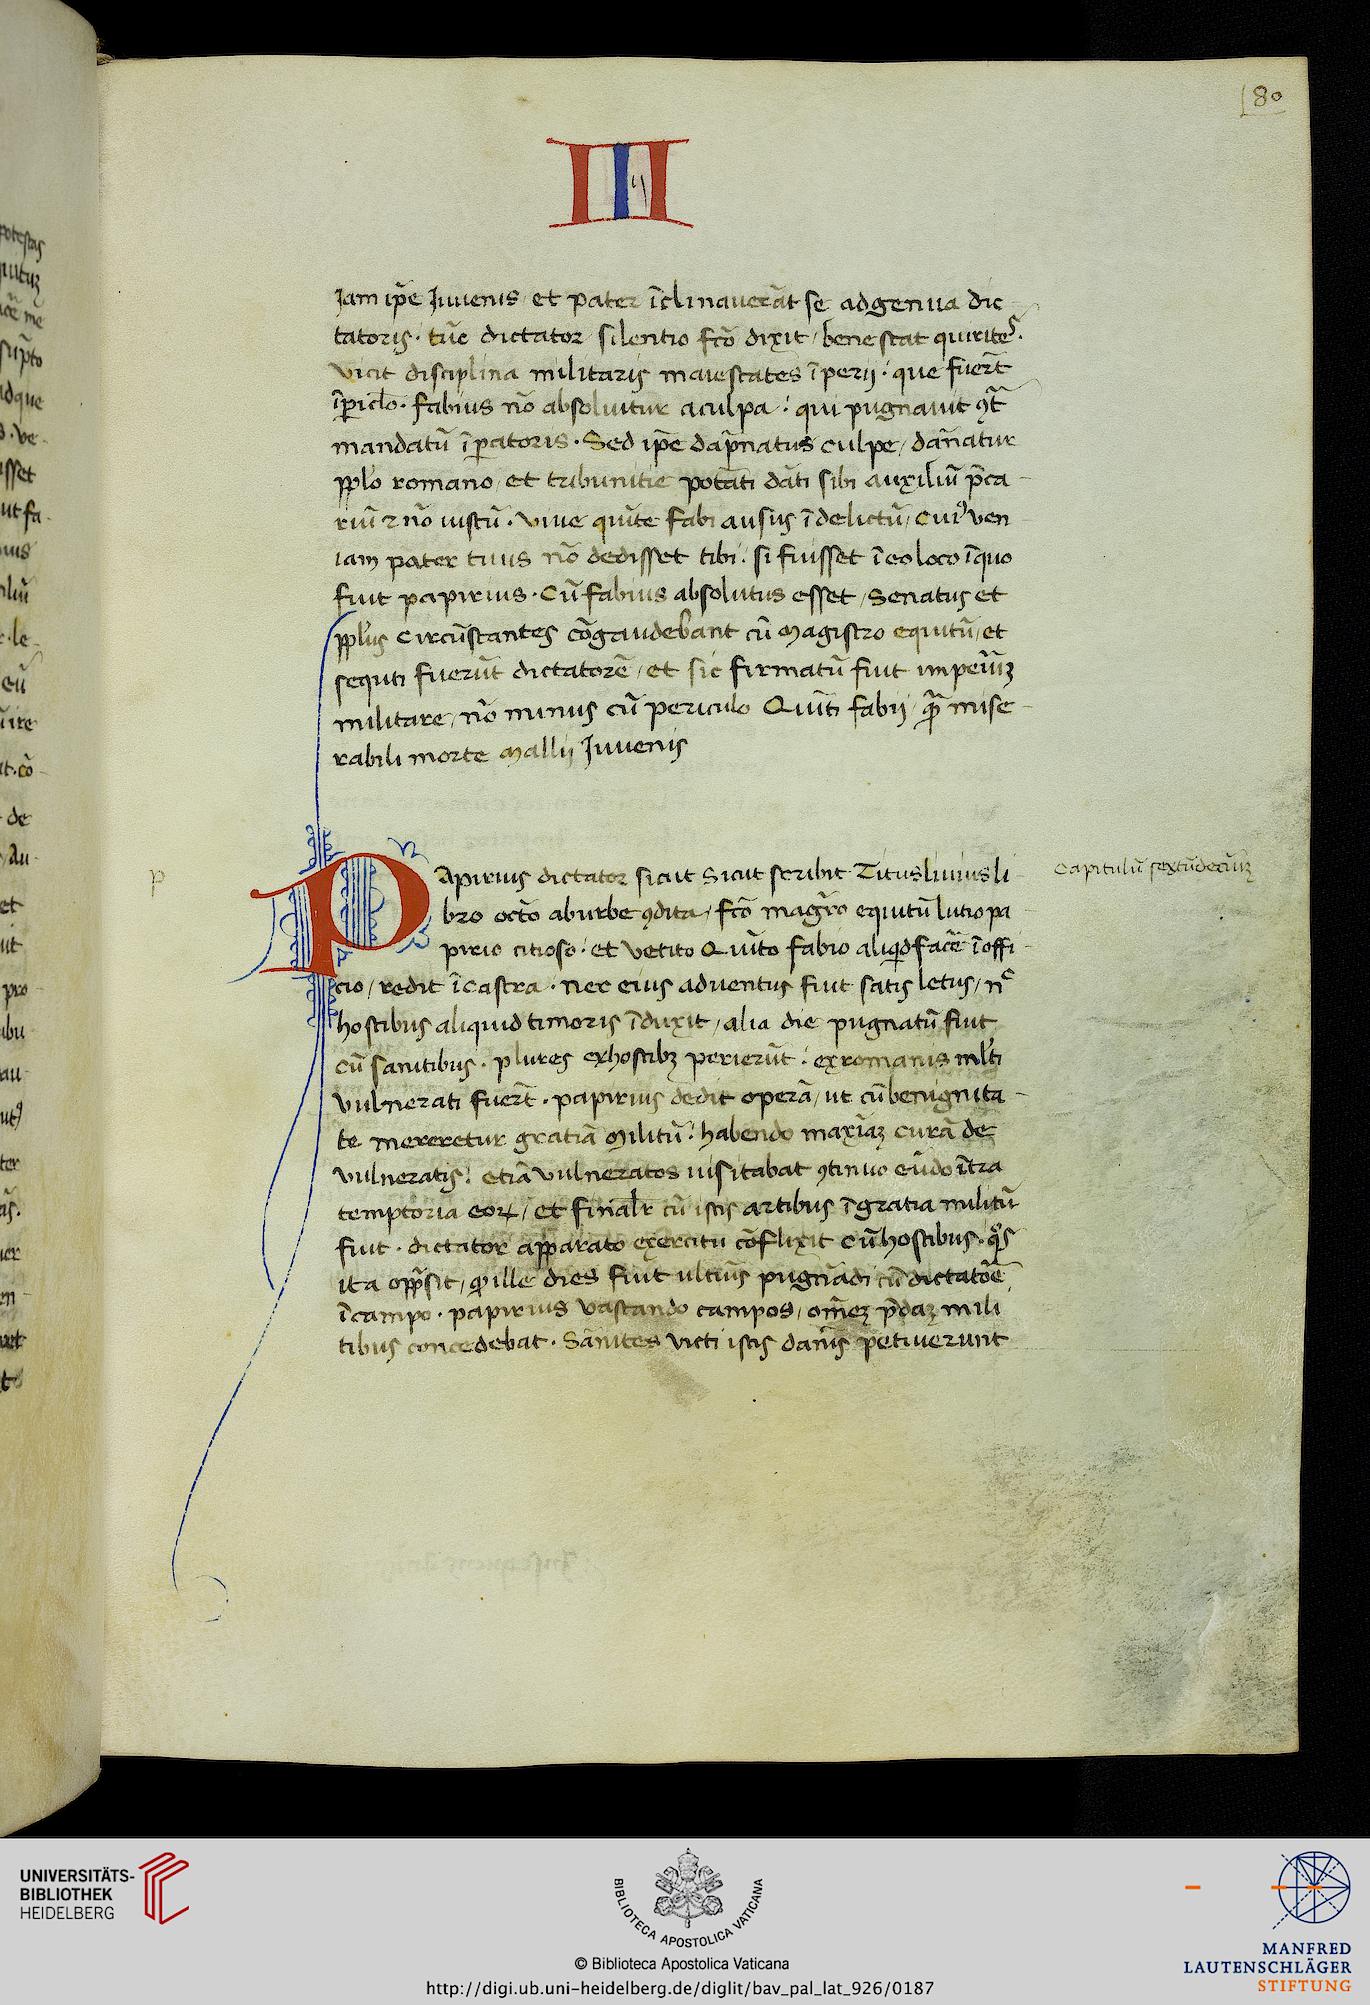 180
III
Iam ip̄e Iuuenis et pater īclinauerāt se adgenua dic
tatoris · tūc dictator silentio fc̄o dixit / bene stat quirites.
vicit disciplina militaris maiestates īperij : que fuer̄t
īpiclo · fabius nō absoluitur aculpa : qui pugnauit ꝯt̄
mandatū īpatoris · Sed ip̄e dapnatus culpe / dānatur
pplo romano / et tribunitie potāti dāti sibi auxiliū p̄ca
riū ⁊ nō iustū · viue quīte fabi ausus ī delictū / Cuiꝰ ven
iam pater tuus nō dedisset tibi : si fuisset ī eo loco īquo
fuit papirius · Cū fabius absolutus esset / Senatus et
pplus circūstantes cōgaudebant cū Magistro equitū / et
sequti fuerūt dictatorē / et sic firmatū fuit imperiūꝫ
militare / nō minus cū periculo Quīti fabij / q̄ mise
rabili morte Mallij Iuuenis
Papirius dictator sicut Sicut scribit Titus liuius li
bro octō aburbe ꝯdita / fc̄o magr̄o equitū lutio pa
pirio citioso · et vetito Quīto fabio aliqd facē ī offi
cio / redit ī castra · nec eius aduentus fuit satis letus / nc̄
hostibus aliquid timoris īduxit / alia die pugnatū fuit
cū sanitibus · plures exhostibꝫ perierūt : ex romanis ml̄ti
vulnerati fuer̄t · papirius dedit operā / ut cū benignita
te mereretur gratiā Militū : habendo maxīaꝫ curā de
vulneratis : etiā vulneratos uisitabat ꝯtinuo eūdo ītra
temptoria eoꝝ / et finalr̄ cū istis artibus ī gratia militū
fuit · dictator apparato exercitu cōflixit cū hostibus · qͦs
ita opp̄sit / ꝙ ille dies fuit ultīus pugnādi cū dictatōe
ī campo · papirius vastando campos / om̄eꝫ p̄daꝫ mili
tibus concedebat · Sānites victi istis dānis petiuerunt
Capitulū sextūdecīuꝫ
p
UNIVERSITÄTS-
BIBLIOTHEK
HEIDELBERG
BIBLIOTECA APOSTOLICA VATICANA
© Biblioteca Apostolica Vaticana
http://digi.ub.uni-heidelberg.de/diglit/bav_pal_lat_926/0187
MANFRED
LAUTENSCHLÄGER
STIFTUNG